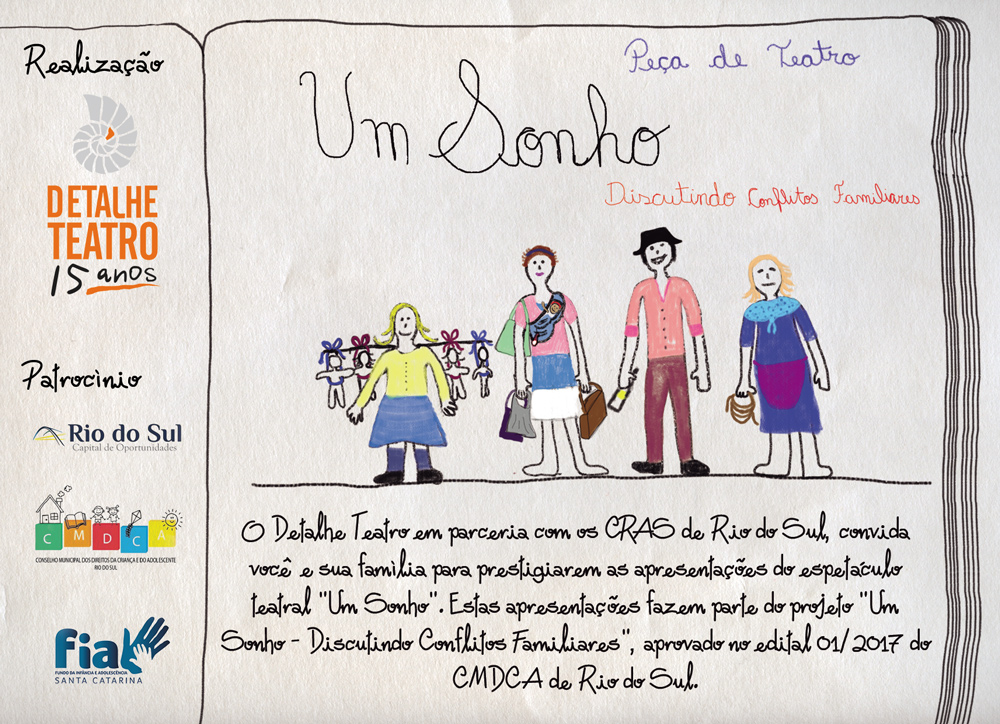 Realização
DETALHE
TEATRO
15 anos
Patrocìnio
Rio do Sul
Capital de Oportunidades
C M D C A
CONSELHO MUNICIPAL DOS DIREITOS DA CRIANÇA E DO ADOLESCENTE
RIO DO SUL
fia
FUNDO DA INFÂNCIA E ADOLESCÊNCIA
SANTA CATARINA
Peça de Teatro
Um Sonho
Discutindo Conflitos Familiares
O Detalhe Teatro em parceria com os CRAS de Rio do Sul, convida
você e sua famìlia para prestigiarem as apresentações do espetàculo
teatral "Um Sonho". Estas apresentações fazem parte do projeto "Um
Sonho - Discutindo Conflitos Familiares", aprovado no edital 01/2017 do
CMDCA de Rio do Sul.